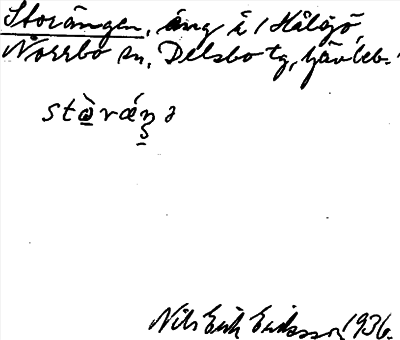 Storängen, äng å/Hålsjö,
Norrbo sn, Delsbo tg, Gävleb.
stàráŋə
Nils Erik Eriksson 1936.